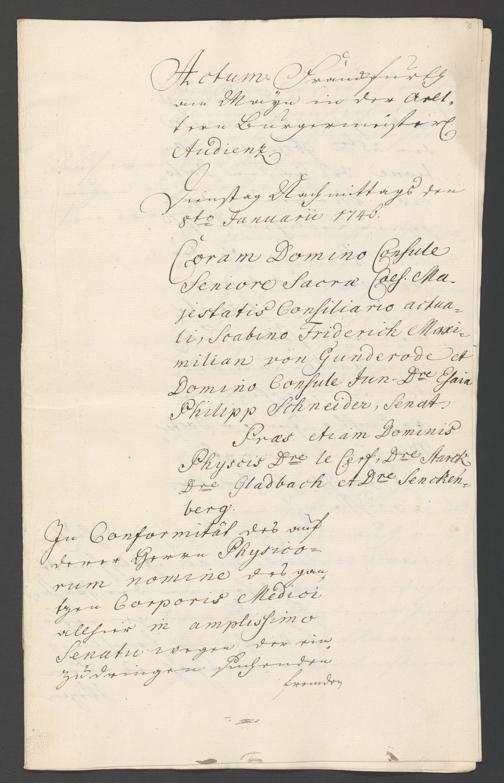 Actum Franckfurth
am Mayn in der Aelt-
tern Burgermeister
Audienz
Dienstag Nachmittags den
Januarii 1746.
Coram Domino Consule
Seniore Sacræ Caes. Ma-
jestatis Consiliario actua-
li, Scabino Friderich Maxi-
milian von Gunderode et
Domino Consule Jun. Dre Esaia
Philipp Schneider, Senat.
Præs etiam Dominis
Physcis Dre le Cerf, Dre
Dre Gladbach et Dre Sencken-
berg.
In Conformität des auf
derer Herrn Physico-
rum nomine des gan-
tzen Corporis Medici
allhier in amplissimo
Senatu wegen der ein-
zudringen suchenden
frembden